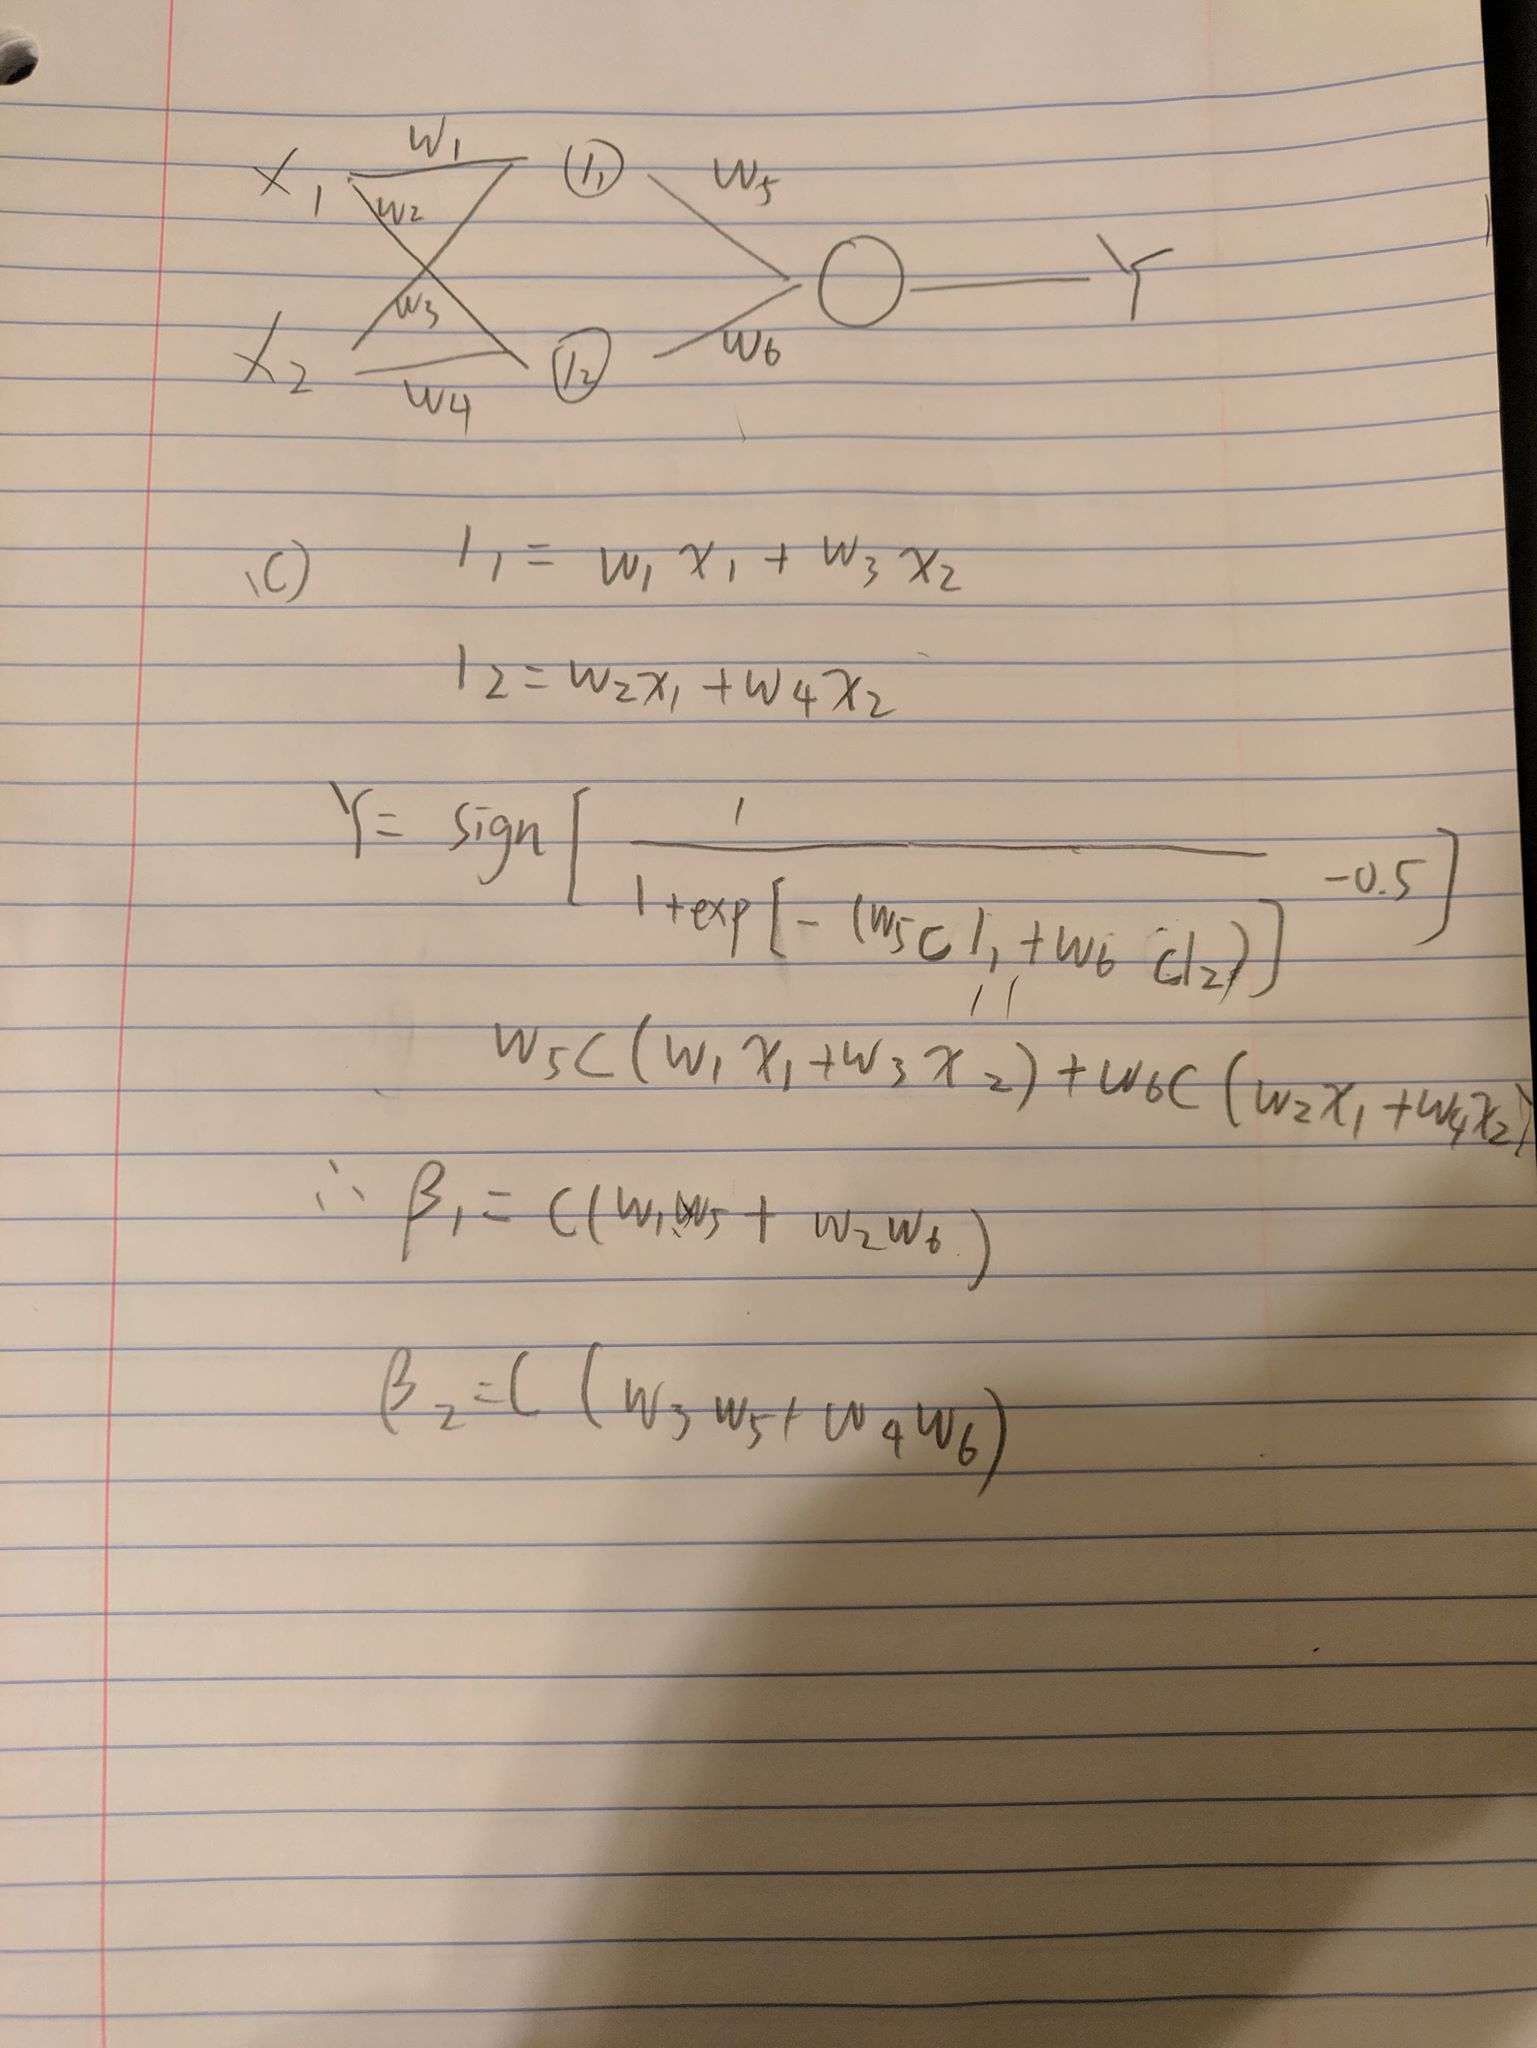 X1 W1 (I1) W5
W2
Y
W3
X2 W4 (I2) W6
(C) I1 = W1 X1 + W3 X2
I2 = W2X1 + W4 X2
Y = sign [ 1 / 1 + exp [ - (W5 C I1 + W6 C I2) ] - 0.5 ]
W5C (W1 X1 + W3 X2) + W6C (W2X1 + W4X2)
∴ β1 = C(W1W5 + W2W6)
β2 = C (W3 W5 + W4 W6)